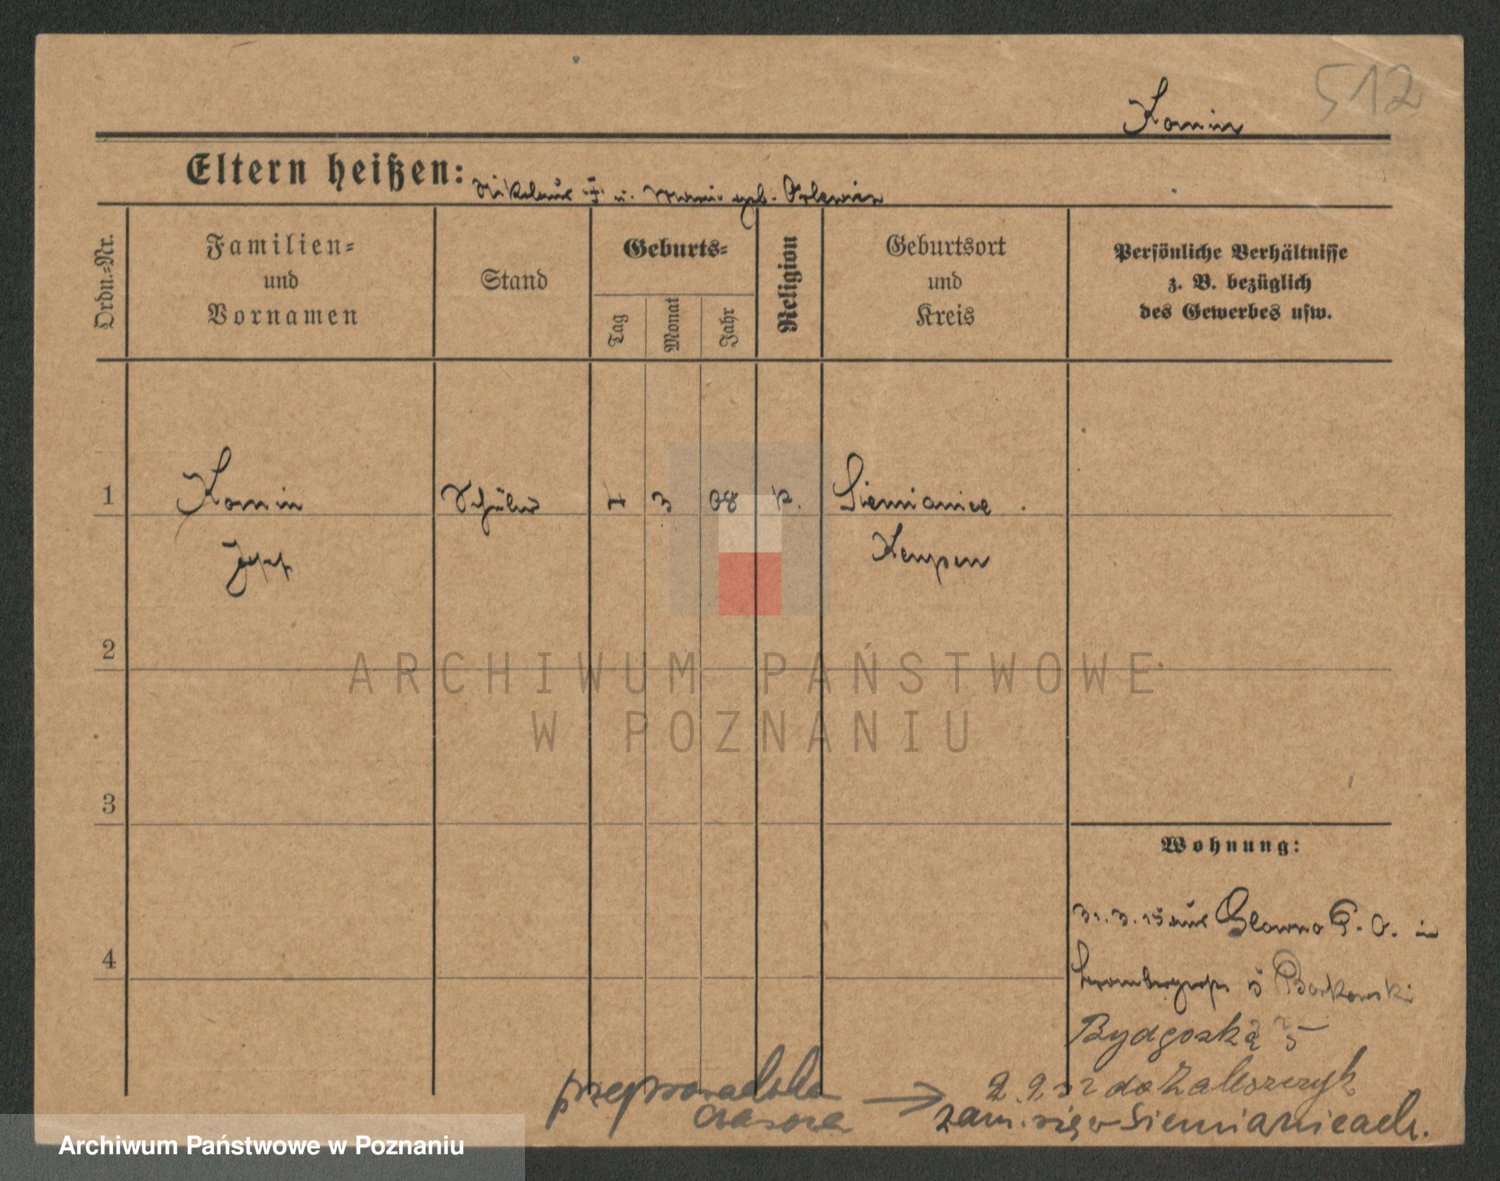 512
Komin
Eltern heißen: Nikolaus † u. Marie geb.
Ordn.=Nr.
Familien=
und
Vornamen
Stand
Geburts=
Tag
Monat
Jahr
Religion
Geburtsort
und
Kreis
Persönliche Verhältnisse
z. B. bezüglich
des Gewerbes usw.
1 Komin Schüler 1 3 08 k. Siemianice
Josef Kempen
2
3
4
ARCHIWUM PAŃSTWOWE
W POZNANIU
Wohnung:
31.3.15 aus Glowno P. O. in
Brombergerstr 5 Borkowski
Bydgoską 5
przeprowadzka → 2.9.22 do Zaleszczyk
czasowa zam. się w Siemianicach.
Archiwum Państwowe w Poznaniu